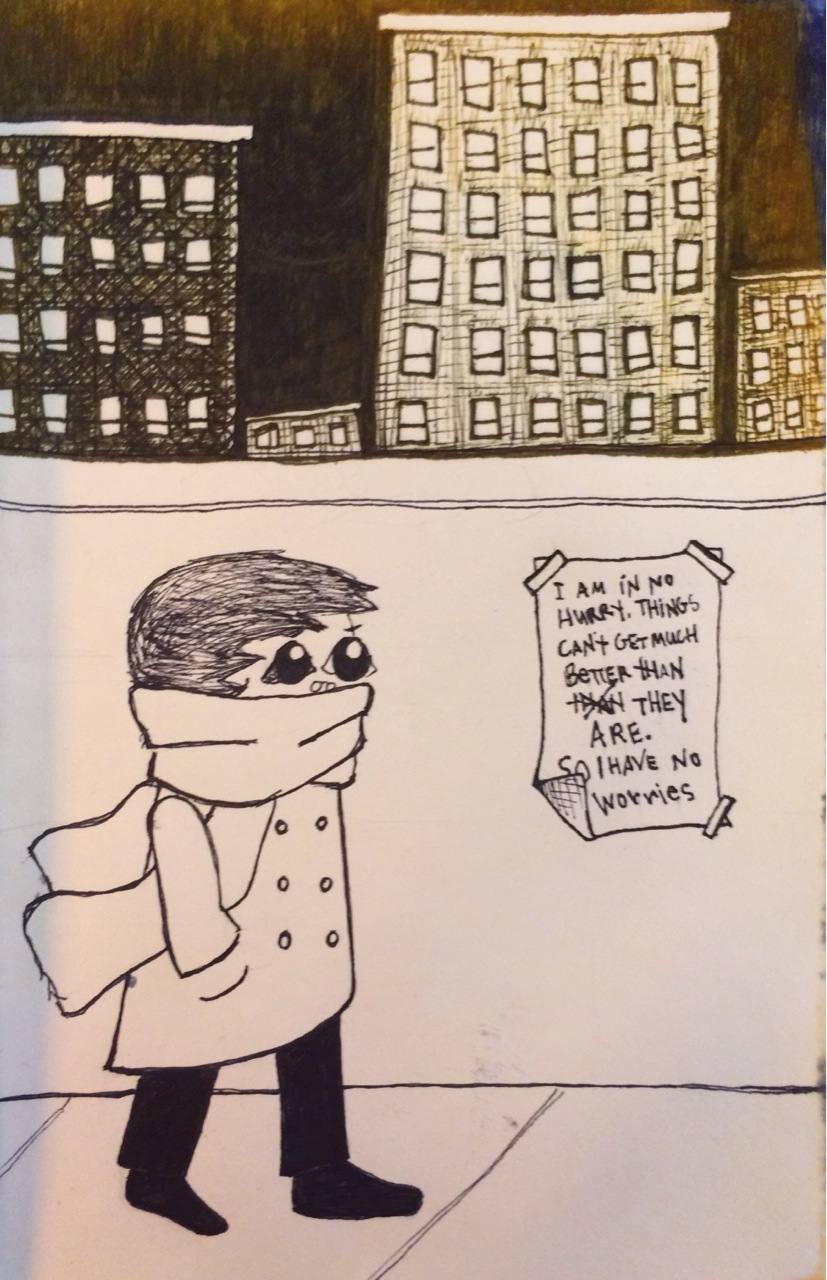 I AM IN NO
HURRY. THINGS
CAN'T GET MUCH
BETTER THAN
THAN THEY
ARE.
SO I HAVE NO
Worries